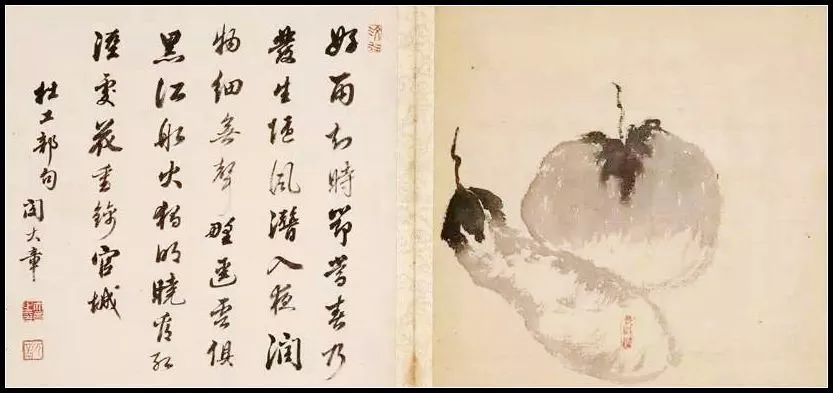 好雨知時節當春乃
發生隨風潛入夜潤
物細無聲野逕雲俱
黑江船火獨明曉看紅
濕處花重錦官城
杜工部句 閔大章